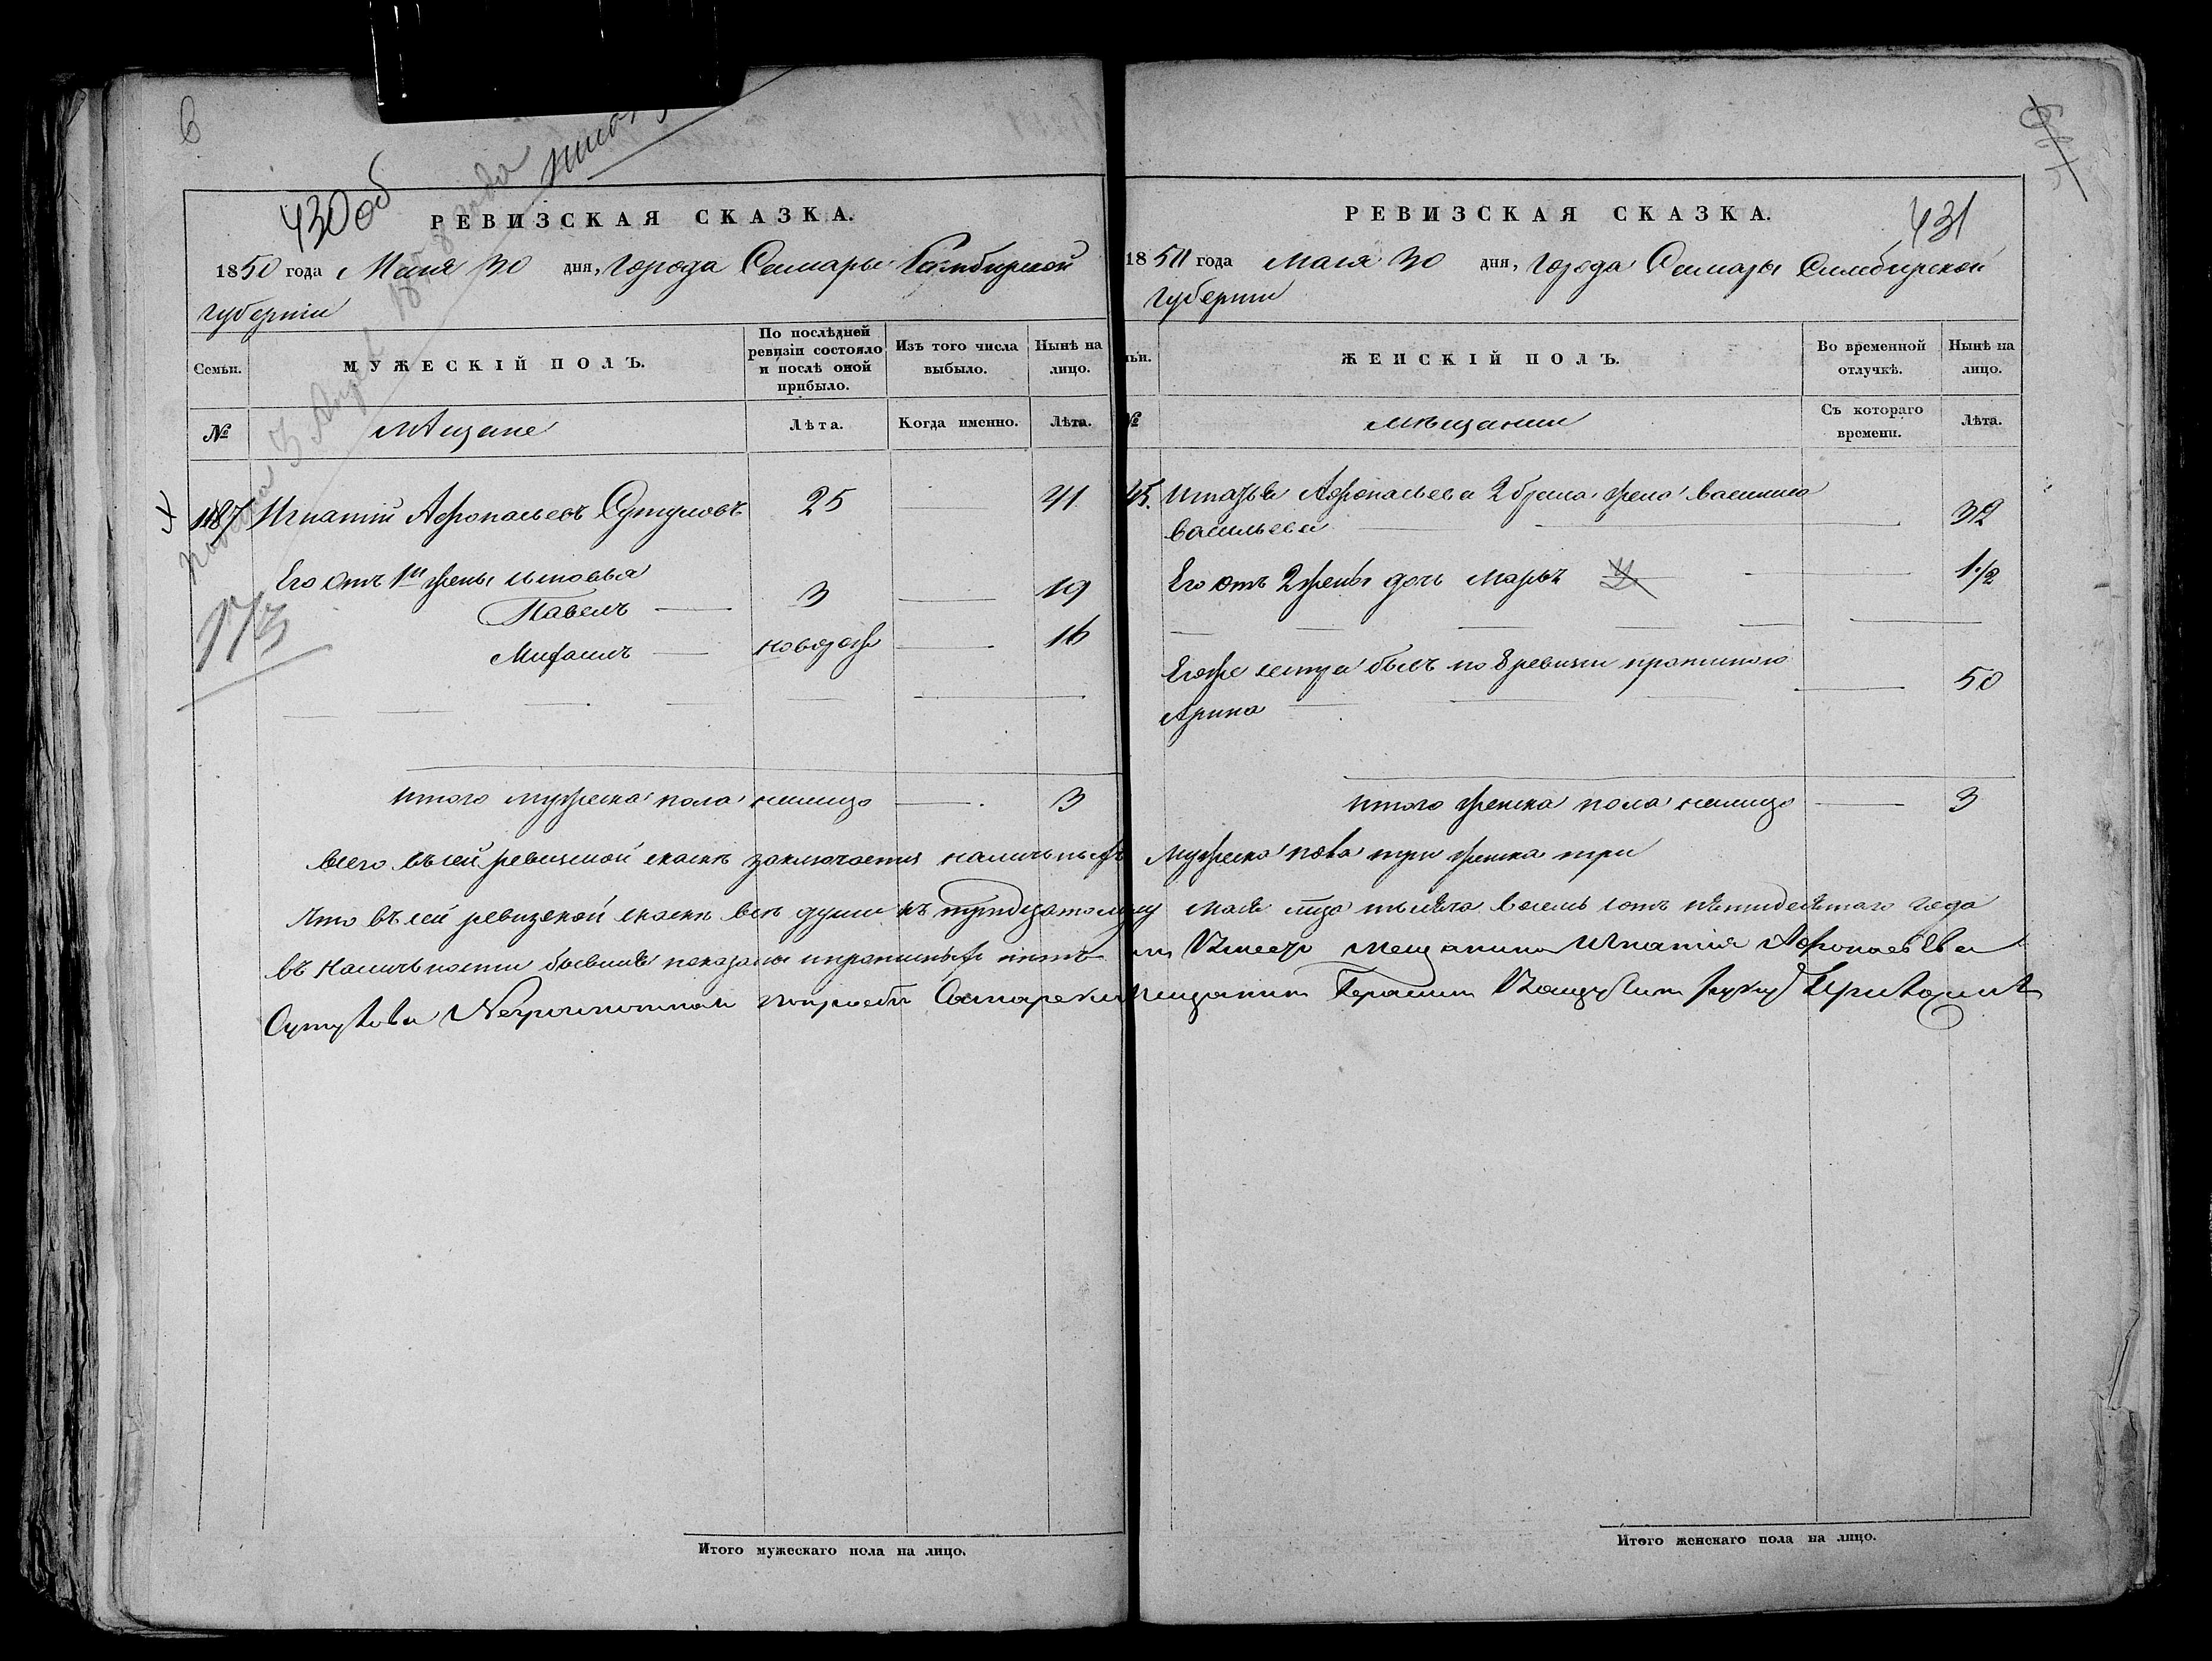 6
430 об
РЕВИЗСКАЯ СКАЗКА.
1850 года Маия 30 дня, города Самары Симбирской
губернии
Семьи.
МУЖЕСКІЙ ПОЛЪ.
По послѣдней ревизіи состояло и послѣ оной прибыло.
Изъ того числа выбыло.
Нынѣ на лицо.
№
Мещане
Лѣта.
Когда именно.
Лѣта.
1187 Игнатій Афонасьевъ Сутуловъ 25 41
Его отъ 1й жены сыновья
Павелъ 3 19
Михаилъ новорож 16
173
итого мужеска пола налицо 3
431
РЕВИЗСКАЯ СКАЗКА.
1850 года Маия 30 дня, города Самары Симбирской
губернии
ЖЕНСКІЙ ПОЛЪ.
Во временной отлучкѣ.
Нынѣ на лицо.
№
мѣщанки
Съ котораго времени.
Лѣта.
Игнатья Афонасьева 2 брака жена
Васильева 32
Его отъ 2 жены дочь Марья 1 1/2
Егоже сестра бывъ по 8 ревизии прописною 50
Арина
итого женска пола налицо 3
всего въ сей ревизской сказкѣ заключается наличныхъ мужеска пола три женска три
Что въ сей ревизской сказкѣ все души къ тридцатому маія тысяча восемь сотъ пятидесятаго года
въ наличности бывшие показаны и прописныхъ нетъ мещанина Игнатия Афонасьева
Сутулова Неграмотнаго попросьбе Самарский мещанин Герасим руку приложилъ
Итого мужескаго пола на лицо.
Итого женскаго пола на лицо.